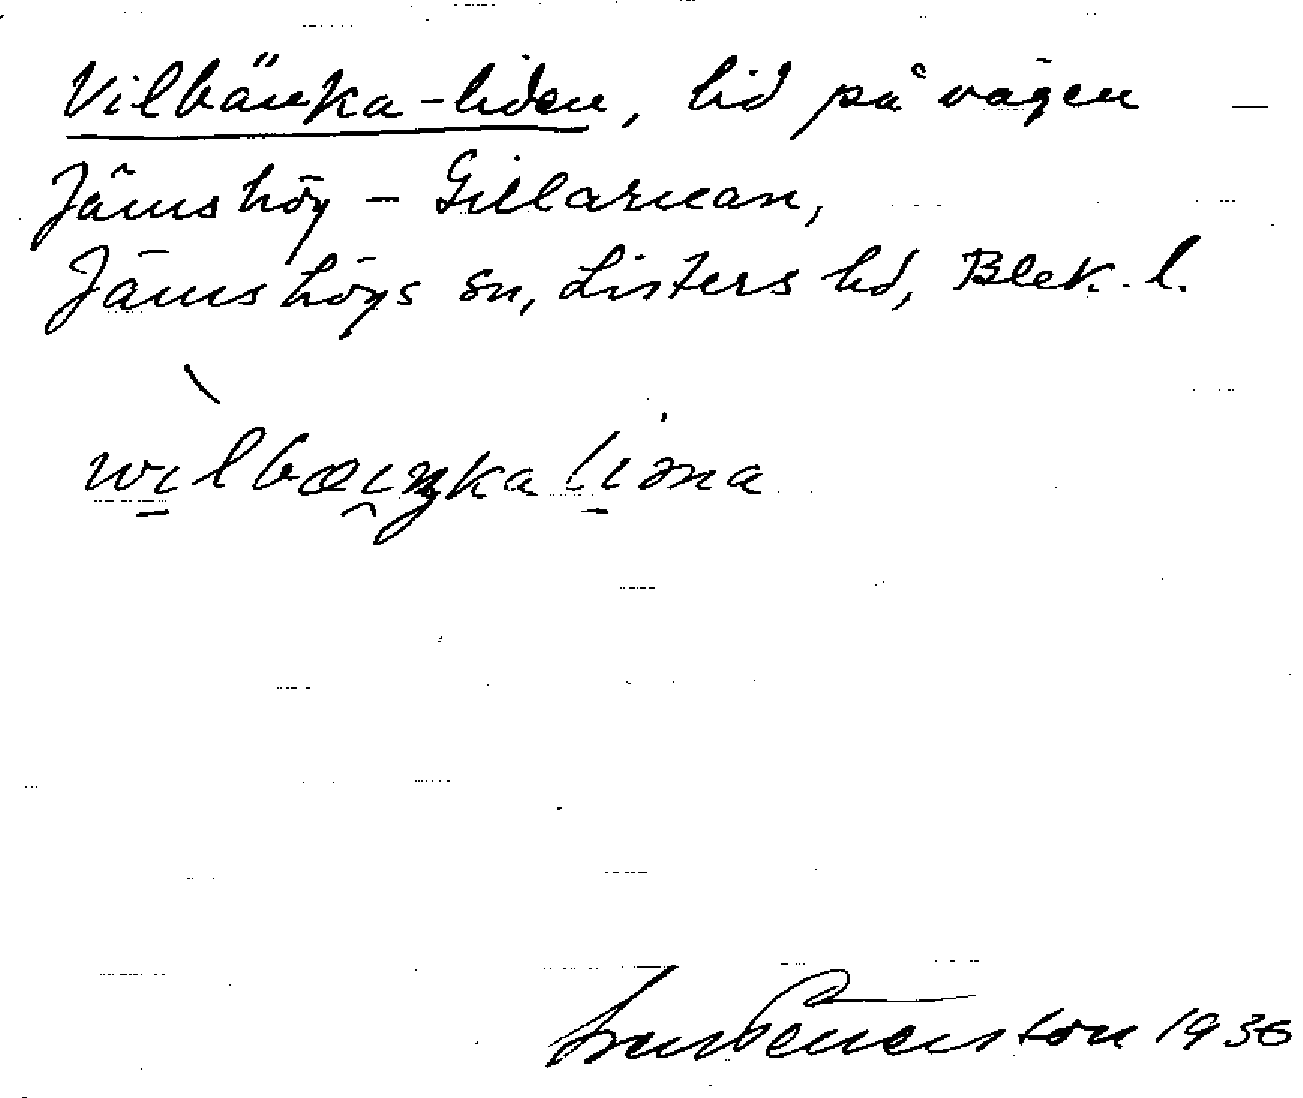 Vilbänka-liden, lid på vägen –
Jämshög – Gillaruan,
Jämshögs sn, Listers hd, Blek. l.
wilbæiŋka liəna
Sven Benson 1936